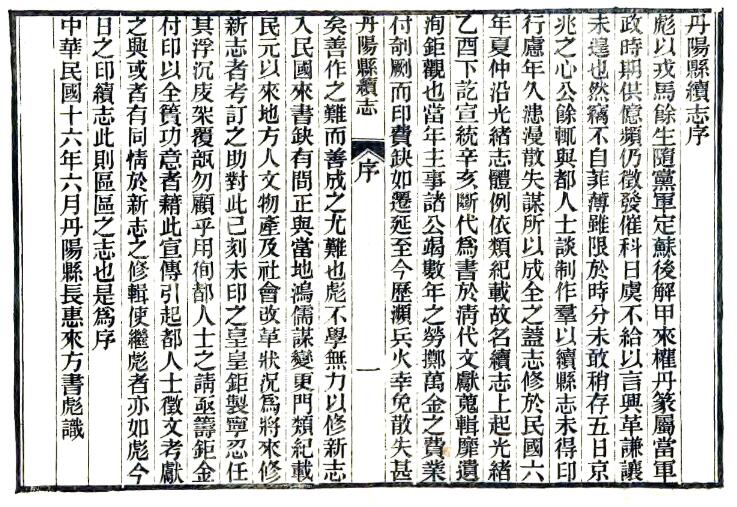 丹陽縣續志序
彪以戎馬餘生隨黨軍定蘇後解甲來權丹篆屬當軍
政時期供億頻仍徵發催科日虞不給以言興革謙讓
未遑也然竊不自菲薄雖限於時分未敢稍存五日京
兆之心公餘輒與都人士談制作羣以續縣志未得印
行慮年久漶漫散失謀所以成全之蓋志修於民國六
年夏仲沿光緒志體例依類紀載故名續志上起光緒
乙酉下訖宣統辛亥斷代爲書於清代文獻蒐輯靡遺
洵鉅觀也當年主事諸公竭數年之勞擲萬金之費業
付剞劂而印費缺如遷延至今歷瀕兵火幸免散失甚
丹陽縣續志 序 一
矣善作之難而善成之尤難也彪不學無力以修新志
入民國來書缺有間正與當地鴻儒謀變更門類紀載
民元以來地方人文物產及社會改革狀況爲將來修
新志者考訂之助對此已刻未印之皇皇鉅製寧忍任
其浮沉庋架覆瓿勿顧乎用徇都人士之請亟籌鉅金
付印以全簣功意者藉此宣傳引起都人士徵文考獻
之興或者有同情於新志之修輯使繼彪者亦如彪今
日之印續志此則區區之志也是爲序
中華民國十六年六月丹陽縣長惠來方書彪識